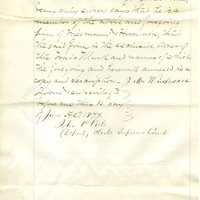 being duly sworn says that he is a
member of the above and foregoing
firm of Wiesmann & , that
the said firm is the exclusive owner of
the Trade Mark and names, of which
the foregoing and hereunto annexed is a
copy and description. J. M.
Sworn and subscribed to
before me this 16 day
of June A.D. 1877
John P.
Deputy Clerk Supreme Court.